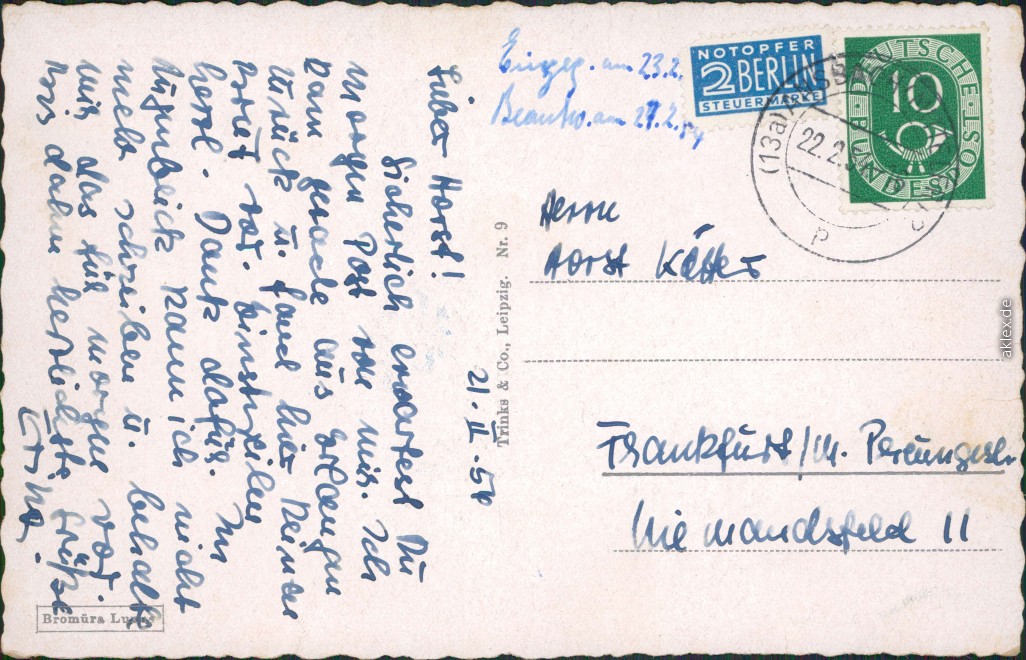 21. II. 54
Lieber Horst!
Sicherlich erwartest Du
morgen Post von mir. Ich
kam gerade aus Erlangen
zurück u. fand hier Deinen
Brief vor. Einstweilen
herzl. Dank dafür. Im
Augenblick kann ich nicht
mehr schreiben u. behalte
mir das für morgen vor.
Bis dahin herzlichste Grüße
Bromüra
Trinks & Co., Leipzig. Nr. 9
Eingeg. am 23.2.
Beantw. am 27.2.54
NOTOPFER
2 BERLIN
STEUERMARKE
DEUTSCHE BUNDESPOST
10
(13a)
22.2.
Herrn
Horst
Frankfurt/M.
Niemandsfeld 11
aklex.de